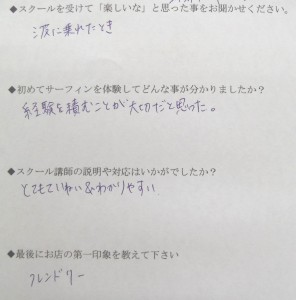 ◆スクールを受けて「楽しいな」と思った事をお聞かせください。
波に乗れたとき
◆初めてサーフィンを体験してどんな事が分かりましたか？
経験を積むことが大切だと思った。
◆スクール講師の説明や対応はいかがでしたか？
とてもていねい&わかりやすい
◆最後にお店の第一印象を教えて下さい
フレンドリー